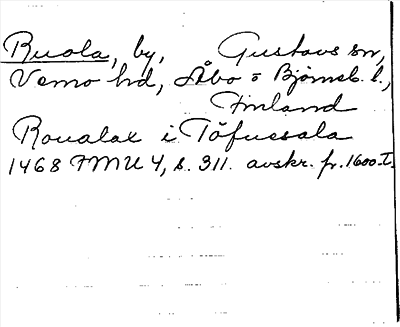 Ruola, by, Gustavs sn,
Vemo hd, Åbo o Björneb. l.,
Finland
Roualax i Töfuesala
1468 FMU 4, s. 311. avskr. fr. 1600-t.